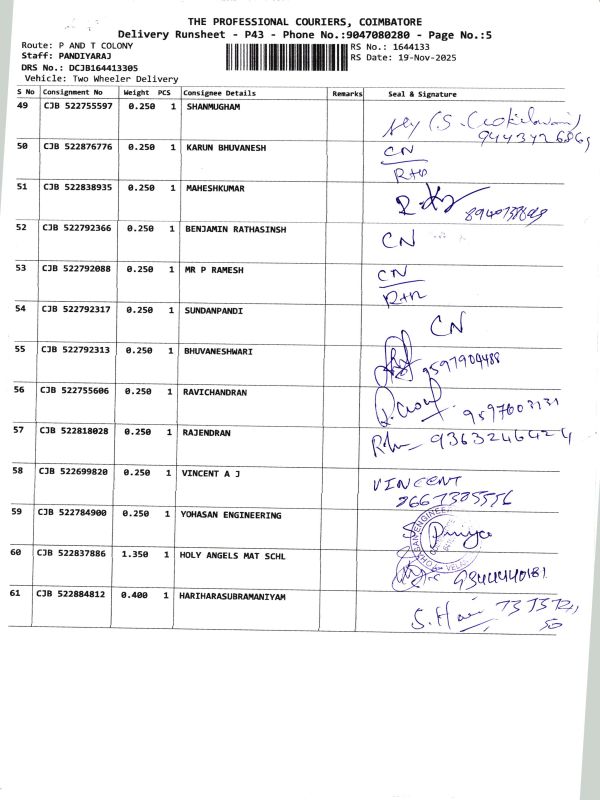 THE PROFESSIONAL COURIERS, COIMBATORE
Delivery Runsheet - P43 - Phone No.:9047080280 - Page No.:5
Route: P AND T COLONY
RS No.: 1644133
Staff: PANDIYARAJ
RS Date: 19-Nov-2025
DRS No.: DCJB164413305
Vehicle: Two Wheeler Delivery
S No Consignment No Weight PCS Consignee Details Remarks Seal & Signature
49 CJB 522755597 0.250 1 SHANMUGHAM
50 CJB 522876776 0.250 1 KARUN BHUVANESH CN
51 CJB 522838935 0.250 1 MAHESHKUMAR
52 CJB 522792366 0.250 1 BENJAMIN RATHASINSH CN
53 CJB 522792088 0.250 1 MR P RAMESH CN
54 CJB 522792317 0.250 1 SUNDANPANDI CN
55 CJB 522792313 0.250 1 BHUVANESHWARI 9597904488
56 CJB 522755606 0.250 1 RAVICHANDRAN
57 CJB 522818028 0.250 1 RAJENDRAN 9363246424
58 CJB 522699820 0.250 1 VINCENT A J VINCENT
59 CJB 522784900 0.250 1 YOHASAN ENGINEERING
60 CJB 522837886 1.350 1 HOLY ANGELS MAT SCHL 9344440181
61 CJB 522884812 0.400 1 HARIHARASUBRAMANIYAM